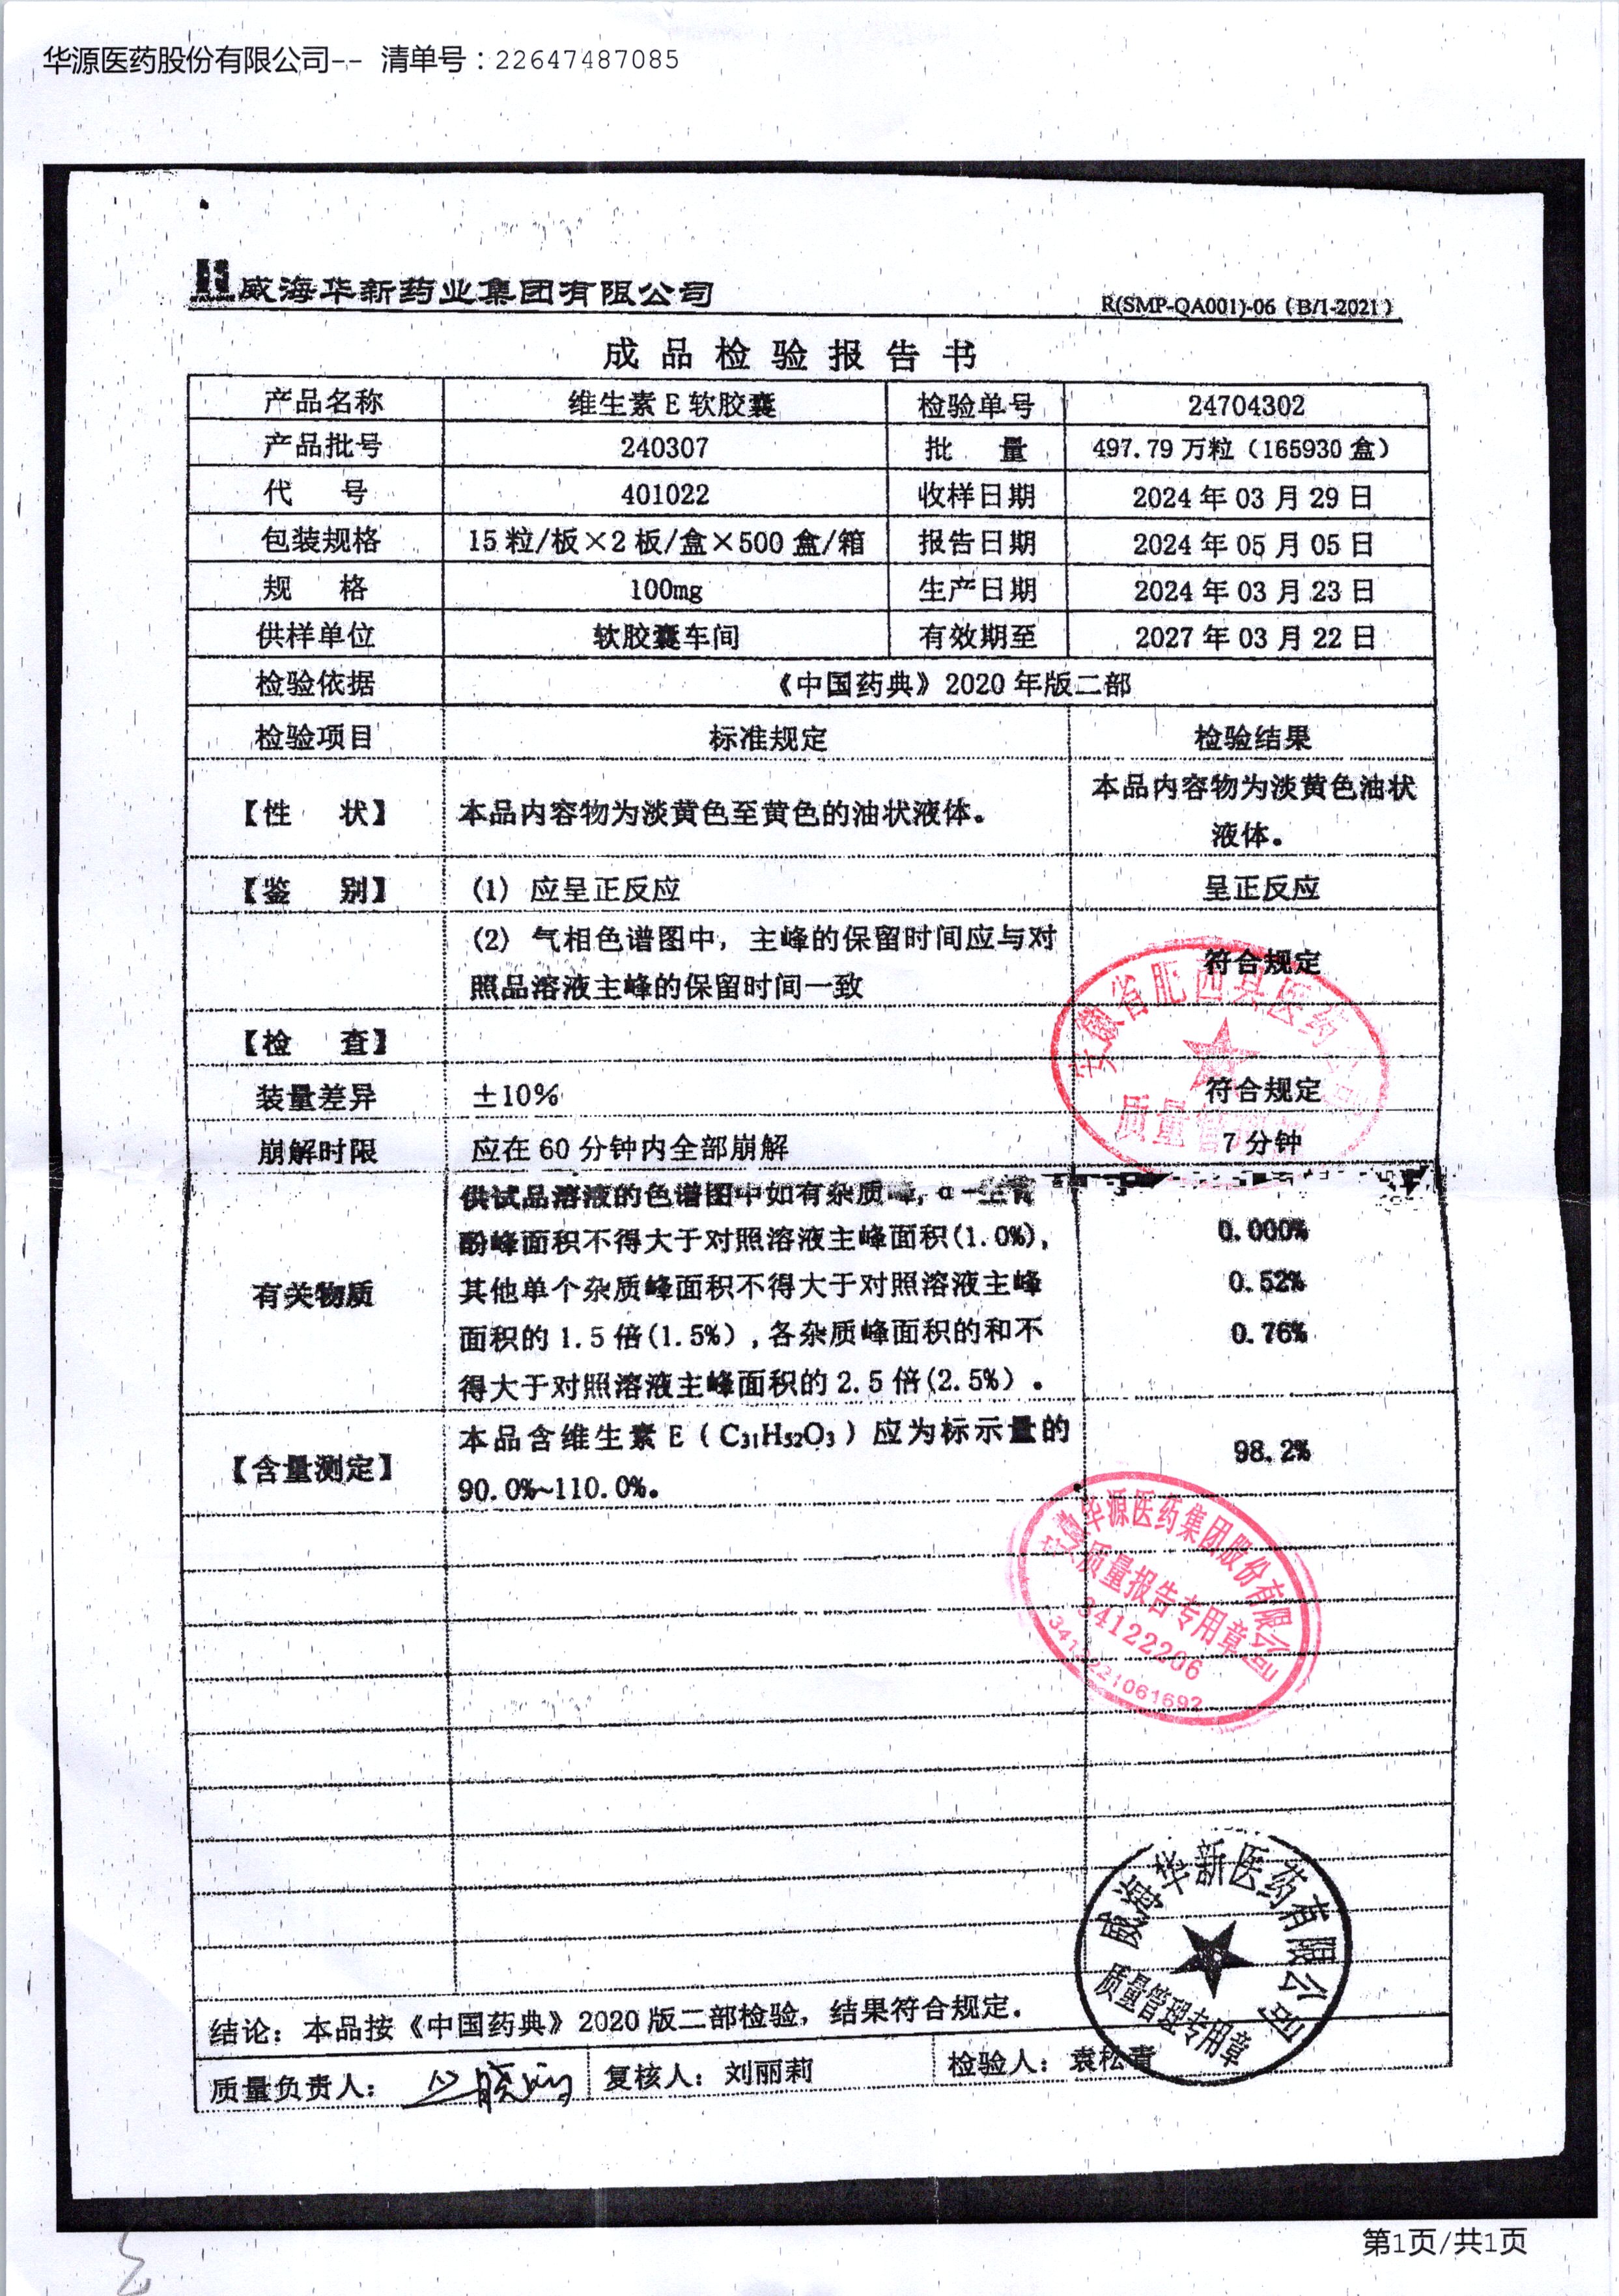 华源医药股份有限公司-- 清单号：22647487085
威海华新药业集团有限公司
R(SMP-QA001)-06（B/1-2021）
成品检验报告书
产品名称 维生素 E 软胶囊 检验单号 24704302
产品批号 240307 批 量 497.79 万粒（165930 盒）
代 号 401022 收样日期 2024 年 03 月 29 日
包装规格 15 粒/板×2 板/盒×500 盒/箱 报告日期 2024 年 05 月 05 日
规 格 100mg 生产日期 2024 年 03 月 23 日
供样单位 软胶囊车间 有效期至 2027 年 03 月 22 日
检验依据 《中国药典》2020 年版二部
检验项目 标准规定 检验结果
【性 状】 本品内容物为淡黄色至黄色的油状液体。 本品内容物为淡黄色油状
液体。
【鉴 别】 (1) 应呈正反应 呈正反应
(2) 气相色谱图中，主峰的保留时间应与对
照品溶液主峰的保留时间一致
符合规定
【检 查】
装量差异 ±10% 符合规定
崩解时限 应在 60 分钟内全部崩解 7 分钟
有关物质
供试品溶液的色谱图中如有杂质峰，α-生育
酚峰面积不得大于对照溶液主峰面积(1.0%)，
其他单个杂质峰面积不得大于对照溶液主峰
面积的 1.5 倍(1.5%)，各杂质峰面积的和不
得大于对照溶液主峰面积的 2.5 倍(2.5%)。
0.000%
0.52%
0.76%
【含量测定】
本品含维生素 E（C₃₁H₅₂O₃）应为标示量的
90.0%~110.0%。
98.2%
安徽省肥西县医药公司
质量管
安徽华源医药集团股份有限公司
质量报告专用章
34122206
3412221061692
威海华新医药有限公司
质量管理专用章
结论：本品按《中国药典》2020 版二部检验，结果符合规定。
质量负责人： 复核人：刘丽莉 检验人：袁松青
第1页/共1页